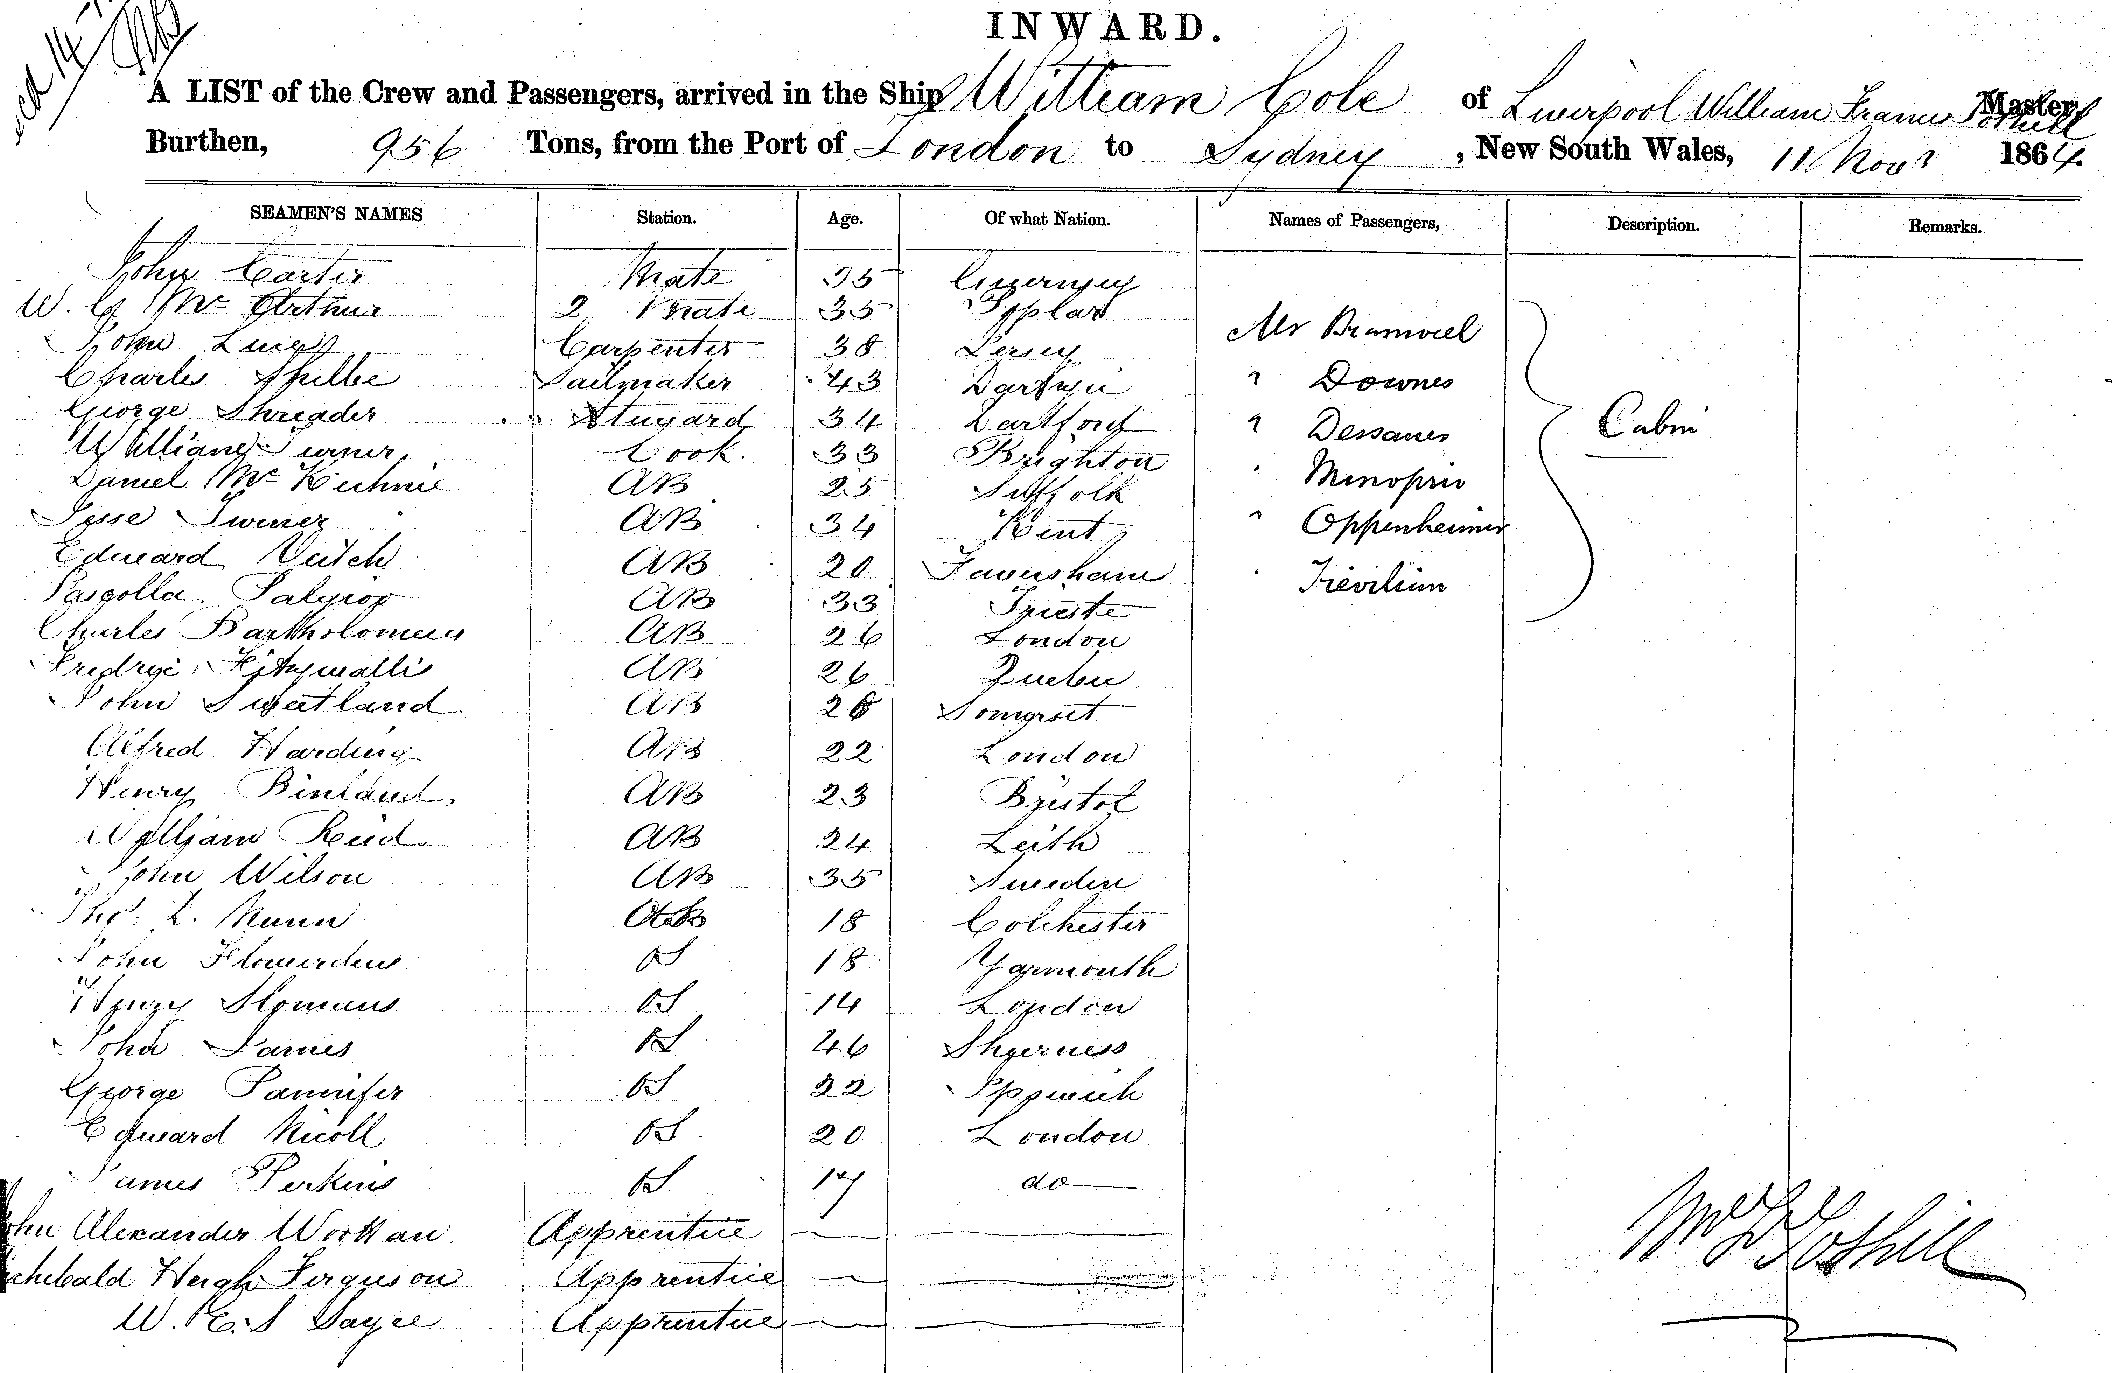 INWARD.
A LIST of the Crew and Passengers, arrived in the Ship William Cole of Liverpool William Francis Tothill Master
Burthen, 956 Tons, from the Port of London to Sydney, New South Wales, 11 Novr 1864
SEAMEN'S NAMES Station. Age. Of what Nation. Names of Passengers, Description. Remarks.
John Carter Mate 35 Guernsey
W. G Mc Arthur 2 Mate 35 Poplar
Mr Bramwell
John Lucas Carpenter 38 Jersey
Charles Sailmaker 43
" Downes
George Shreader Stuyard 34 Dartford
" Dessaues
Cabin
William Turner Cook. 33 Brighton
Daniel Mc AB 25 Suffolk
Minoprio
Jesse Turner AB 34 Kent
" Oppenheimer
Edward Veitch AB 20 Faversham
AB 33 Trieste
Charles Bartholomew AB 26 London
AB 26 Quebec
John Sweetland AB 28 Somerset
Alfred Harding AB 22 London
Henry AB 23 Bristol
William Reid AB 24 Leith
John Wilson AB 35 Sweden
Thos. L. Nunn 18 Colchester
John Flowerdew OS 18 Yarmouth
Henry Slomans OS 14 London
John James OS 46 Sheerness
George Pannifer OS 22 Ipswich
Edward Nicoll OS 20 London
James Perkins OS 17 do
John Alexander Workman Apprentice
Archibald Hugh Ferguson Apprentice
W. E. S Sayce Apprentice
Wm F Tothill